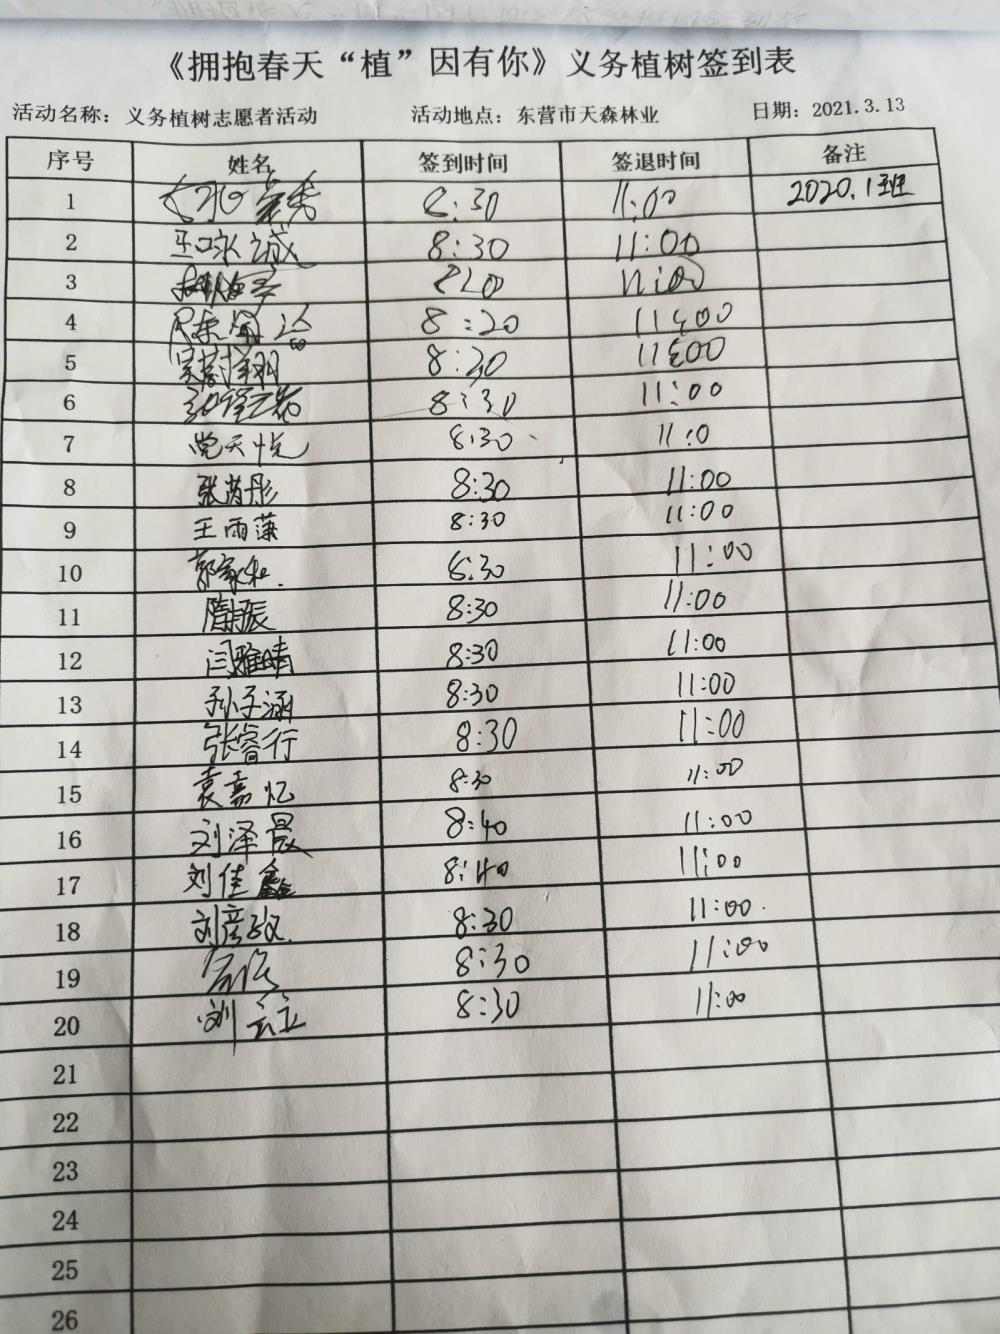 《拥抱春天“植”因有你》义务植树签到表
活动名称：义务植树志愿者活动 活动地点：东营市天森林业 日期：2021.3.13
序号 姓名 签到时间 签退时间 备注
1 8:30 11:00 2020.1班
2 8:30 11:00
3
4 8:20 11:00
5 8:30 11:00
6 8:30 11:00
7 党天悦 8:30 11:0
8 张芮彤 8:30 11:00
9 王雨藻 8:30 11:00
10 郭家和 8:30 11:00
11 隋振 8:30 11:00
12 闫雅晴 8:30 11:00
13 孙子涵 8:30 11:00
14 张睿行 8:30 11:00
15 袁嘉忆 8:30 11:00
16 刘泽晨 8:40 11:00
17 刘佳鑫 8:40 11:00
18 刘彦孜 8:30 11:00
19 8:30 11:00
20 刘 8:30 11:00
21
22
23
24
25
26